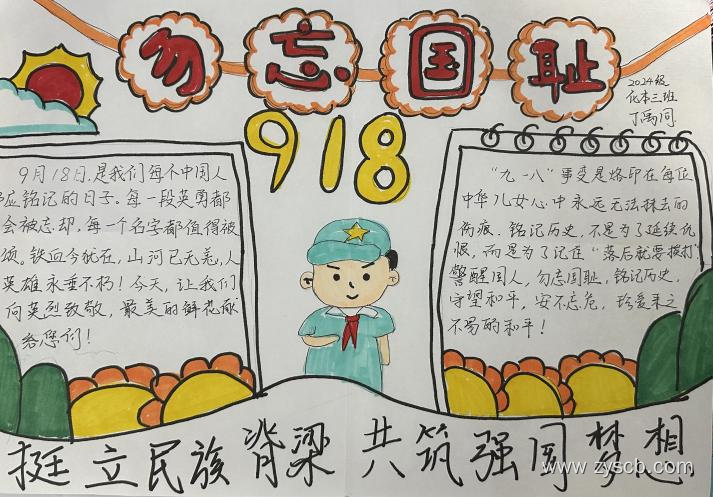 勿忘国耻
2024级
化本三班
丁禹同
918
9月18日,是我们每个中国人
应铭记的日子。每一段英勇都
会被忘却,每一个名字都值得被
颂。铁血今犹在,山河已无恙,人
英雄永垂不朽!今天,让我们
向英烈致敬,最美的鲜花献
给您们!
“九一八”事变是烙印在每位
中华儿女心中永远无法抹去的
伤痕.铭记历史,不是为了延续仇
恨,而是为了记在“落后就要挨打
警醒国人,勿忘国耻,铭记历史,
守望和平,安不忘危,珍爱来之
不易的和平!
挺立民族脊梁 共筑强国梦想
www.zyscb.com